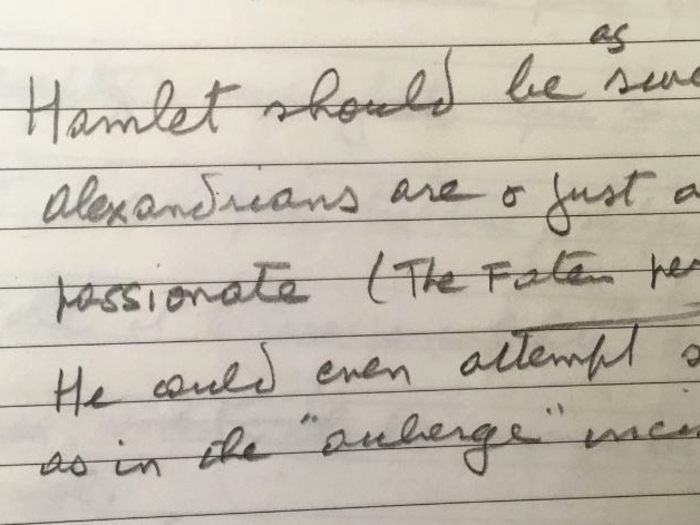 as
Hamlet should be
alexandrians are & just
passionate (The Faten
He could even attempt
as in the "auberge"